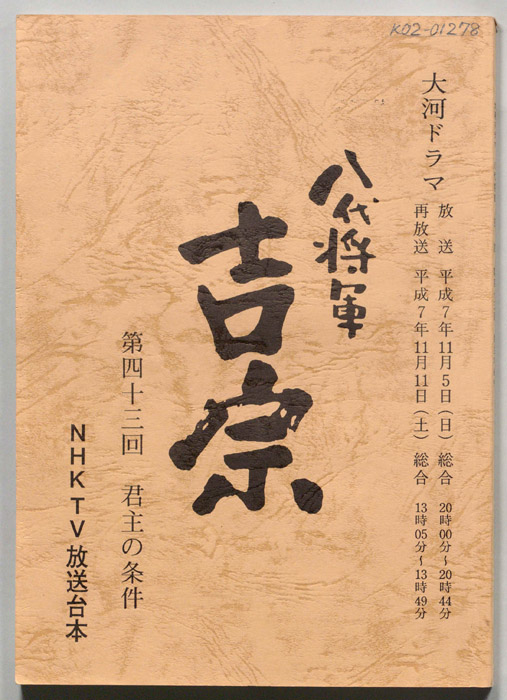 K02-01278
大河ドラマ
放送 平成7年11月5日(日) 総合 20時00分~20時44分
再放送 平成7年11月11日(土) 総合 13時05分~13時49分
八代将軍
吉宗
第四十三回 君主の条件
NHKTV放送台本